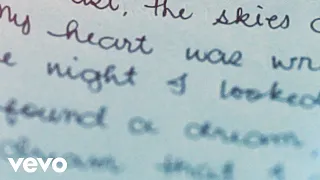 the skies
my heart was wr
e night I looked
found a dream,
dream that I
vevo